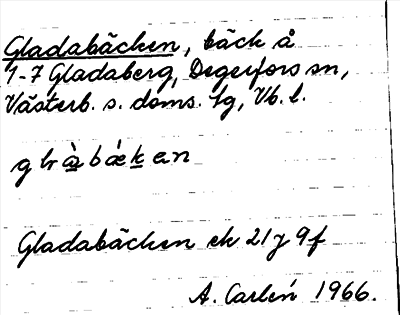 Gladabäcken, bäck å
1-7 Gladaberg, Degerfors sn,
Västerb. s. doms. lg, Vb. l.
Gladabäcken ek 21J 9f
A. Carlén 1966.